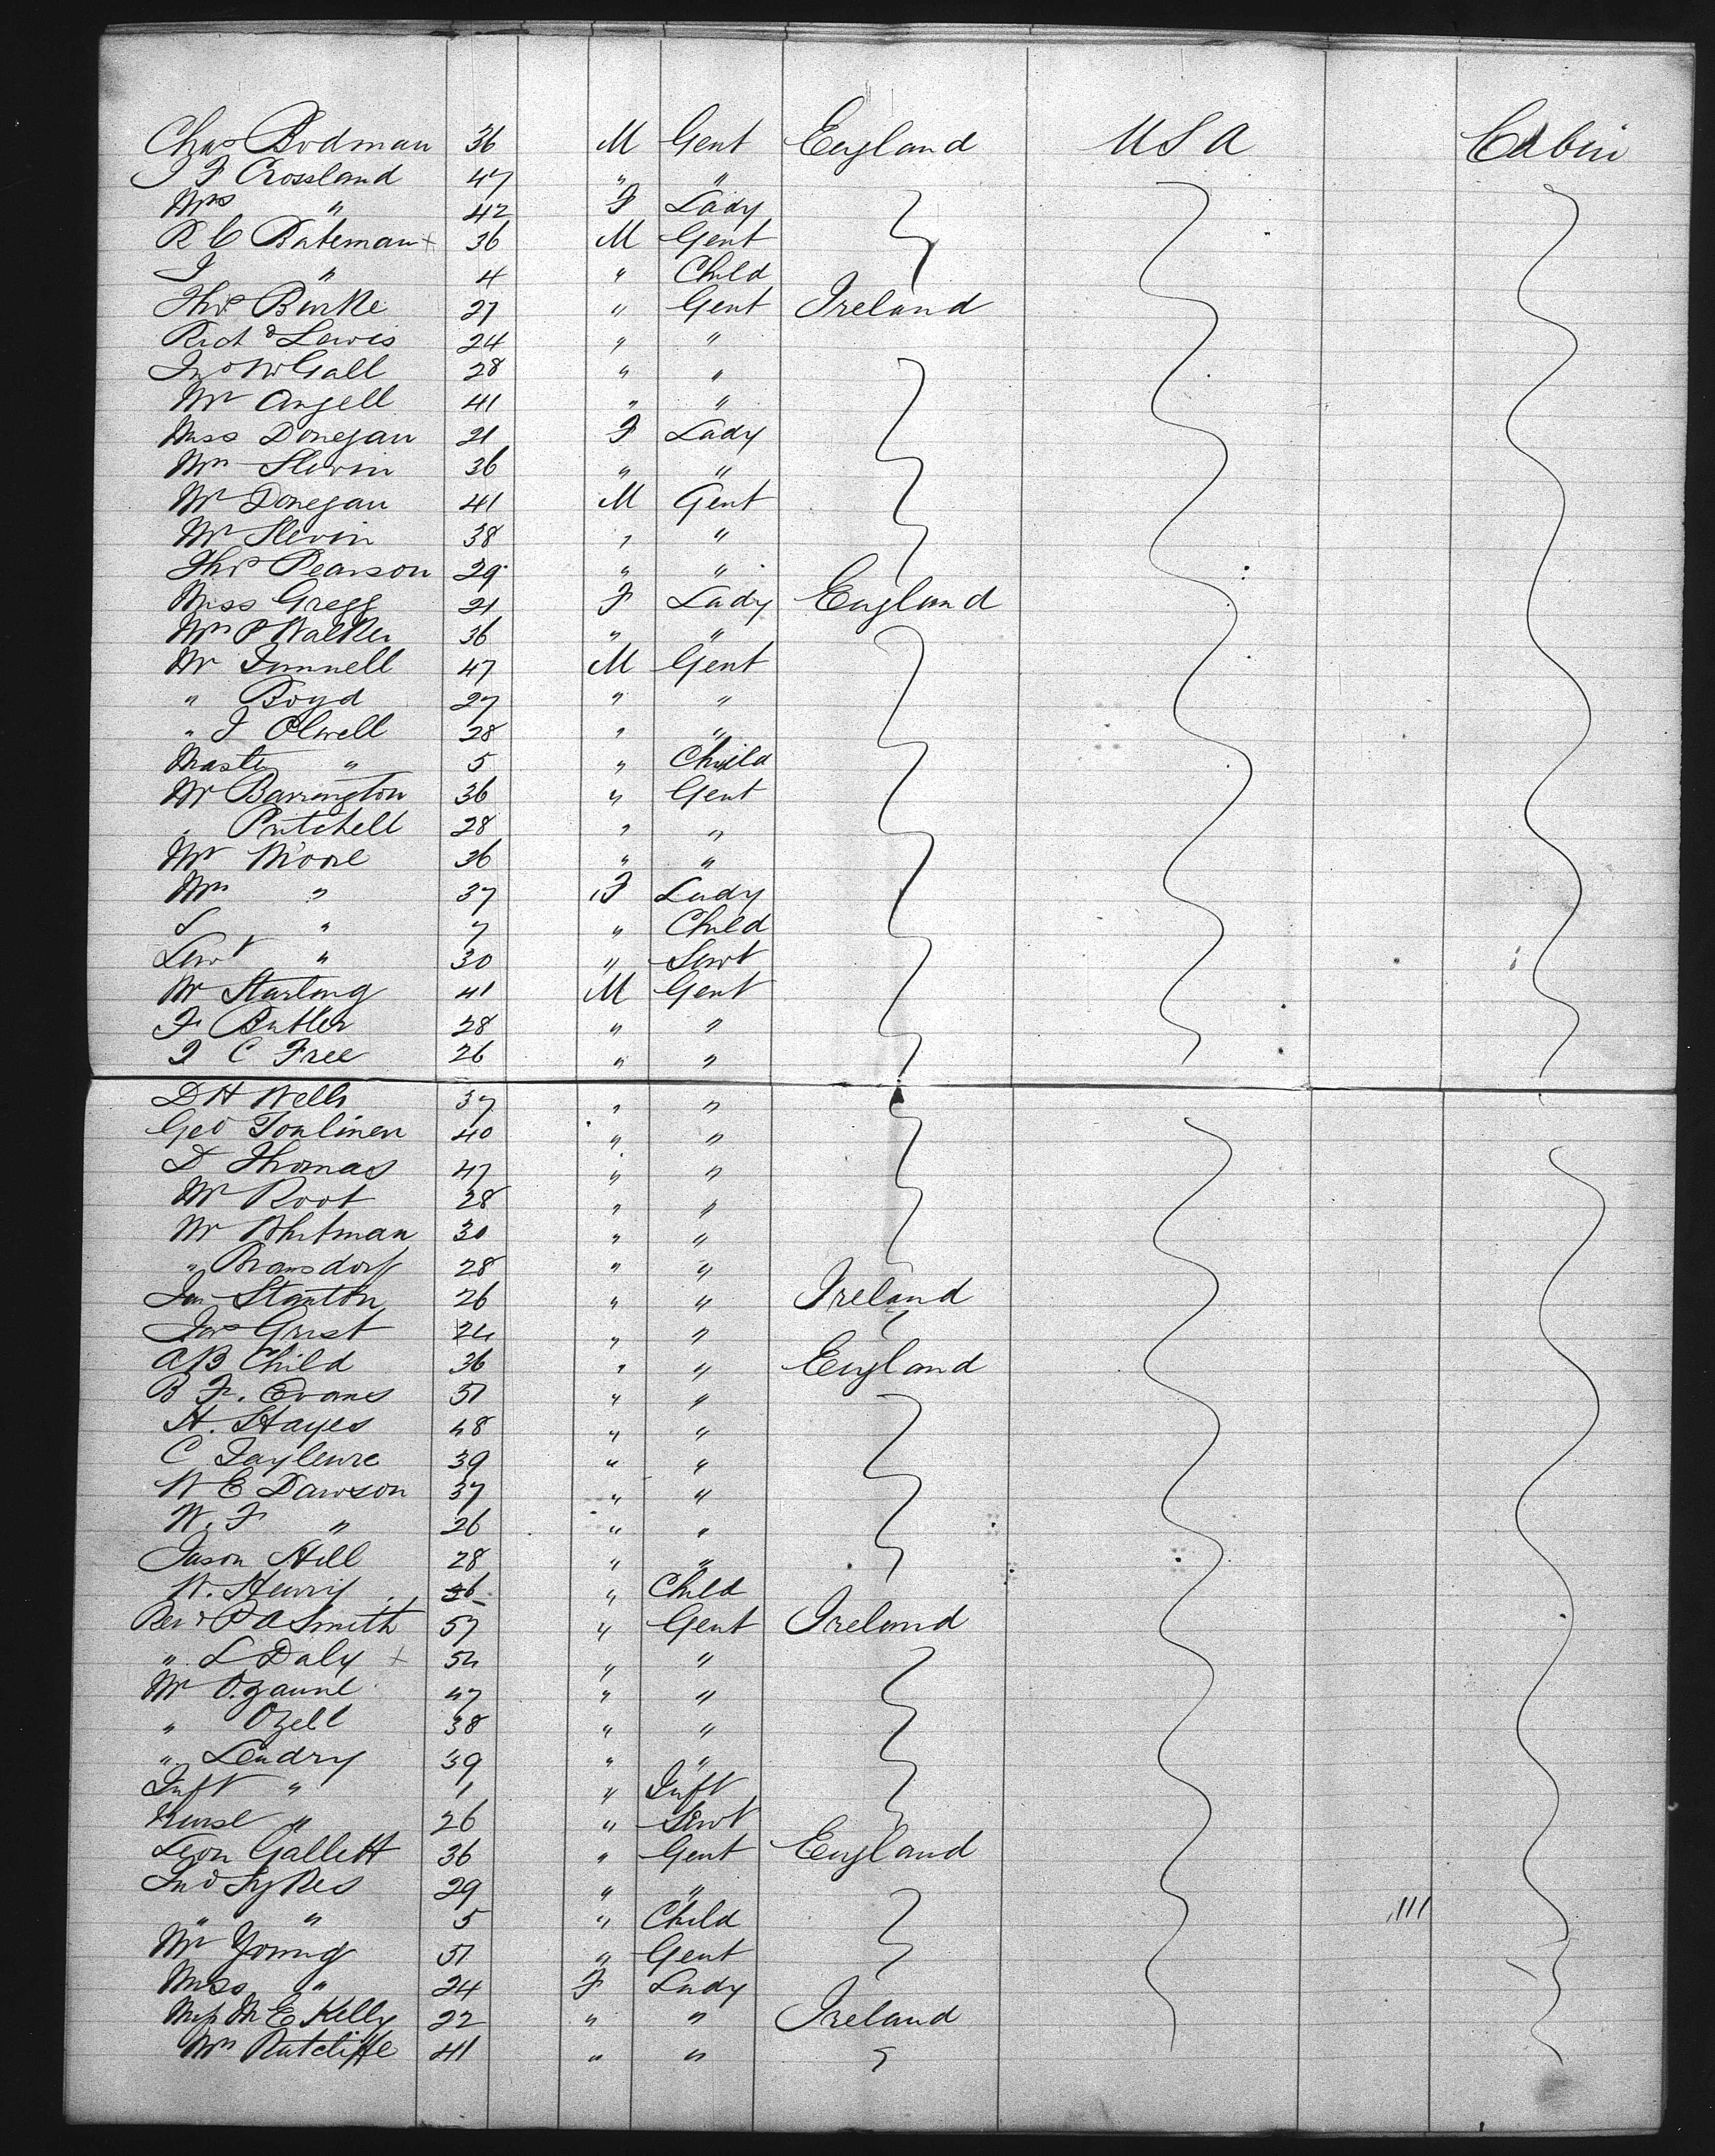 Chas Bodman 36 M Gent England USA Cabin
J F Crossland 47 " "
Mrs " 42 F Lady
R C Bateman + 36 M Gent
J " 4 " Child
Thos Burke 27 " Gent Ireland
Richd Lewis 24 " "
Jno McGall 28 " "
Mr Angell 41 " "
Miss Donegan 21 F Lady
Mrs Slevin 36 " "
Mr Donegan 41 M Gent
Mr Slevin 38 " "
Thos Pearson 29 " "
Miss Gregg 21 F Lady England
Mrs P Walker 36 " "
Mr Tunnell 47 M Gent
" Boyd 27 " "
" J Olwell 28 " "
Master " 5 " Child
Mr Barrington 36 " Gent
" Pritchell 28 " "
Mr Moore 36 " "
Mrs " 37 F Lady
S " 7 " Child
Servt " 30 " Servt
Mr Starling 41 M Gent
F Butler 28 " "
J C Free 26 " "
D H Wells 37 " "
Geo Tomlinen 40 " "
D Thomas 47 " "
Mr Root 28 " "
Mr Whitman 30 " "
" Bransdorf 28 " "
Jas Stanton 26 " " Ireland
Jas Grist 24 " "
A B Child 36 " " England
B F. Evans 51 " "
H. Hayes 48 " "
C Tayleure 39 " "
W E Dawson 37 " "
W. F " 26 " "
Jason Hill 28 " "
W. Henry 6 " Child
Revd P A Smith 57 " Gent Ireland
" L Daly + 54 " "
Mr Ozanne 47 " "
" Ozell 38 " "
" Lendry 39 " "
Inft " 1 " Inft
Nurse " 26 " Servt
Leon Gallett 36 " Gent England
Jno Sykes 29 " "
" " 5 " Child 111
Mr Young 51 " Gent
Miss " 24 F Lady
Miss M E Kelly 22 " " Ireland
Mrs Ratcliffe 41 " " "